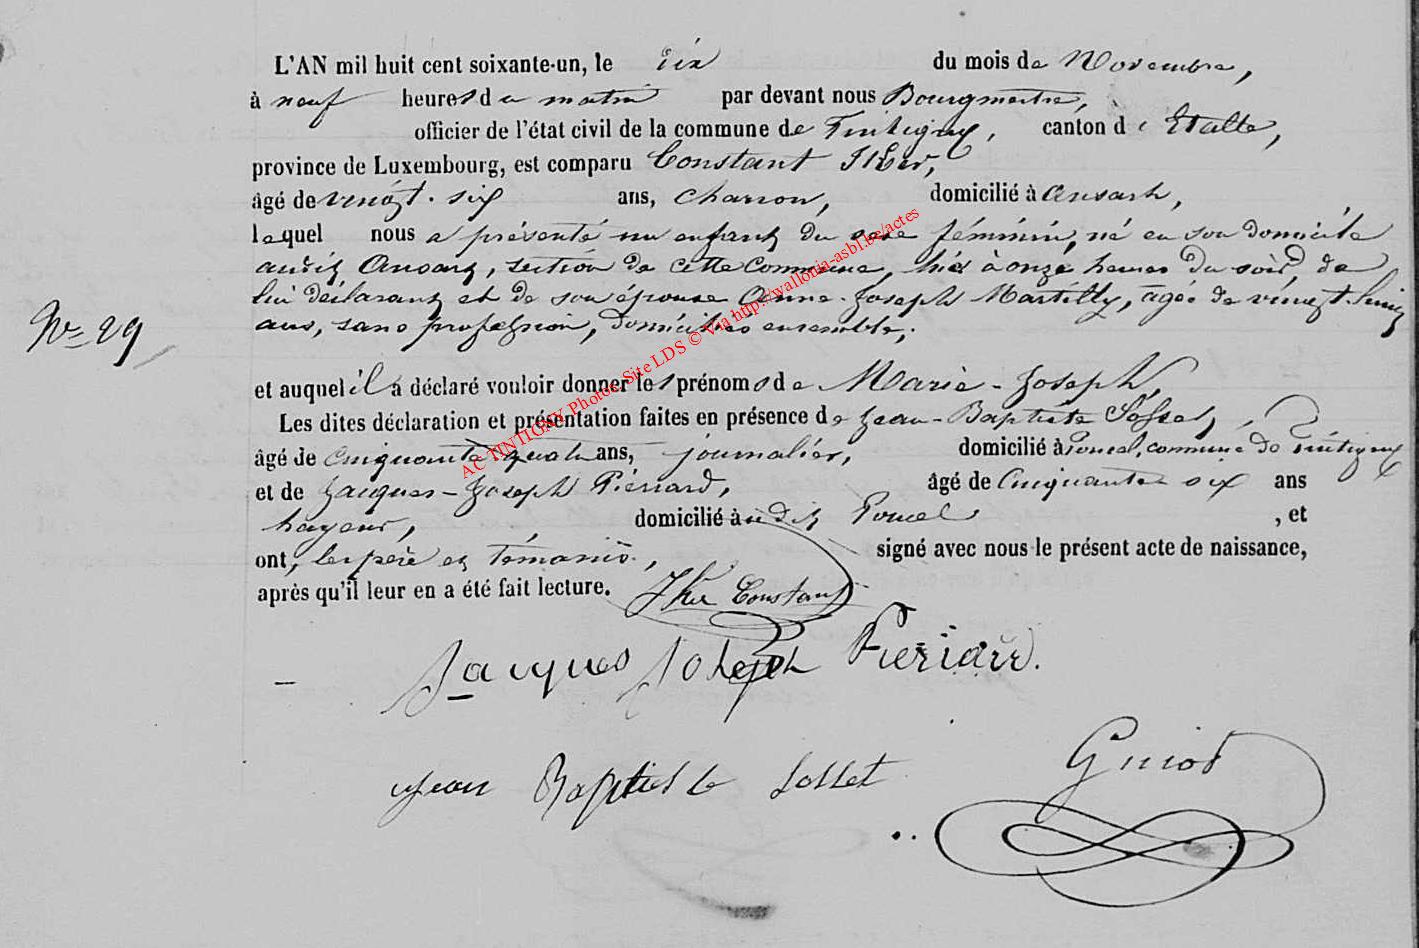 L'AN mil huit cent soixante-un, le dix du mois de Novembre,
à neuf heures du matin par devant nous Bourgmestre,
officier de l'état civil de la commune de Tintigny, canton d'Etalle,
province de Luxembourg, est comparu Constant
âgé de vingt-six ans, charron, domicilié à Ansart,
lequel nous a présenté un enfant du sexe féminin, né en son domicile
audit Ansart, section de cette commune, hier à onze heures du soir, de
lui déclarant et de son épouse Anne-Joseph Martilly, agée de vingt-huit
ans, sans profession, domiciliés ensemble;
N° 29
et auquel il a déclaré vouloir donner les prénoms de Marie-Joseph,
Les dites déclaration et présentation faites en présence de Jean-Baptiste Sosset,
âgé de cinquante quatre ans, journalier, domicilié à Poncel, commune de Tintigny
et de Jacques-Joseph Pierrard, âgé de Cinquante six ans
domicilié audit Poncel, et
ont, les père et témoins, signé avec nous le présent acte de naissance,
après qu'il leur en a été fait lecture. Constant
Jacques Joseph Pierard.
Jean Baptiste Sosset
Guiot
AC TINTIGNY Photos Site LDS © Via http://wallonia-asbl.be/actes